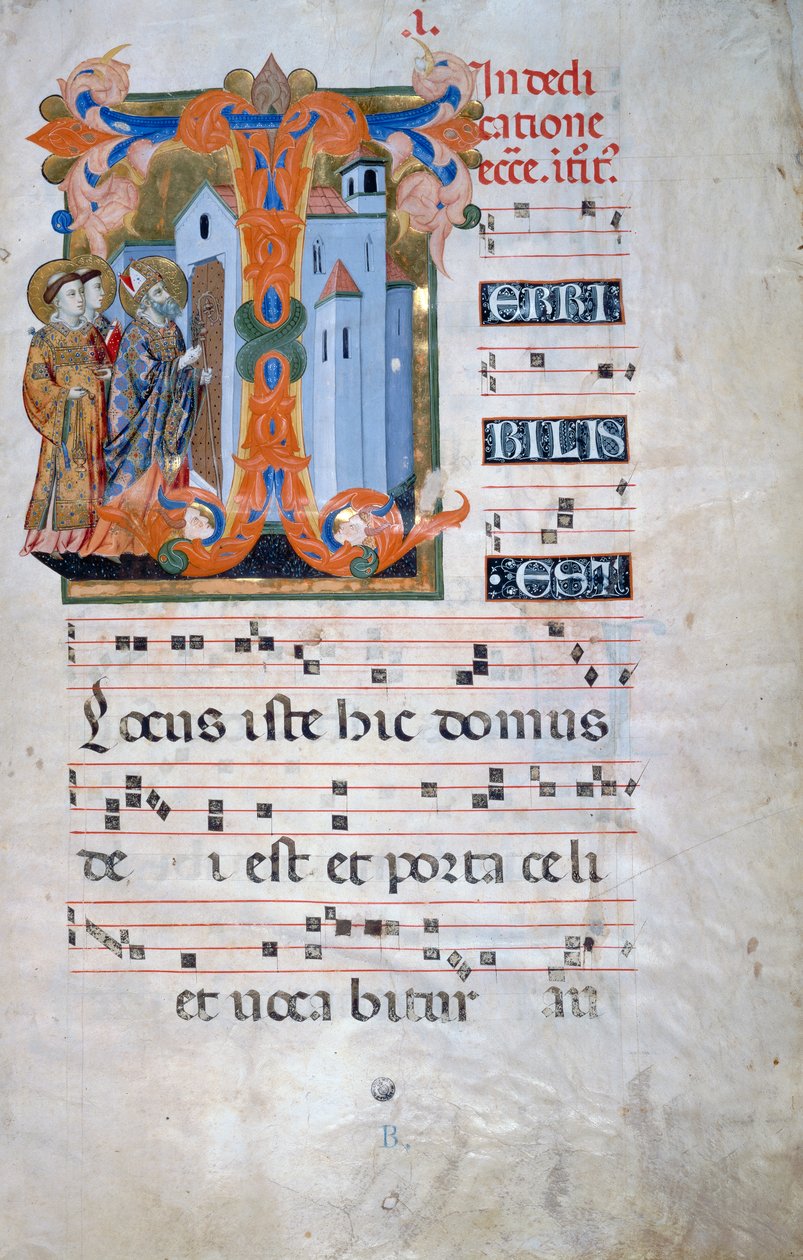 .1.
In dedi
catione
ecc̄e. itīt᷒.
T
ERRI
BILIS
EST
Locus iste hic domus
de i est et porta celi
et uoca bitur au
B.